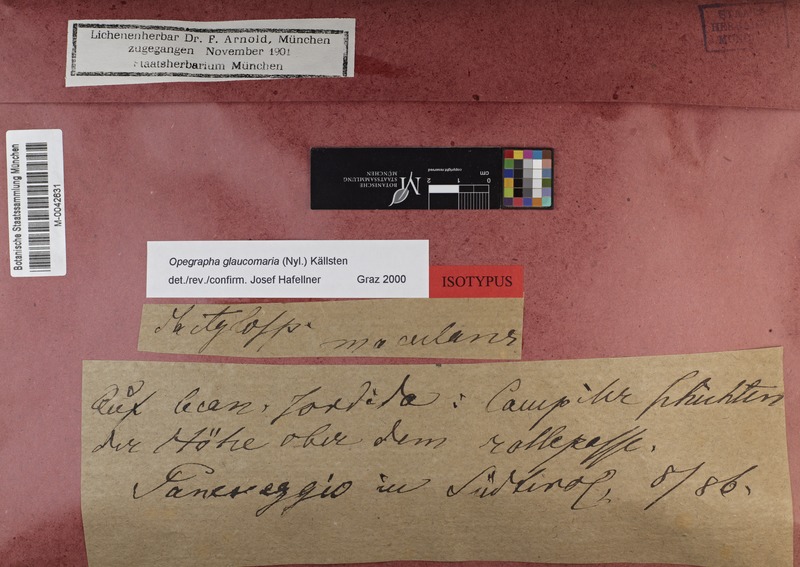 Lichenenherbar Dr. F. Arnold, München
zugegangen November 1901
Staatsherbarium München
Botanische Staatssammlung München
M-0042631
BOTANISCHE
STAATSSAMMLUNG
MÜNCHEN
M
copyright reserved
0 1 2
cm
Opegrapha glaucomaria (Nyl.) Källsten
det./rev./confirm. Josef Hafellner Graz 2000
ISOTYPUS
maculans
Auf Lecan. sordida:
der Höhe ober dem rollepasse.
Paneveggio in Südtirol, 8/86.